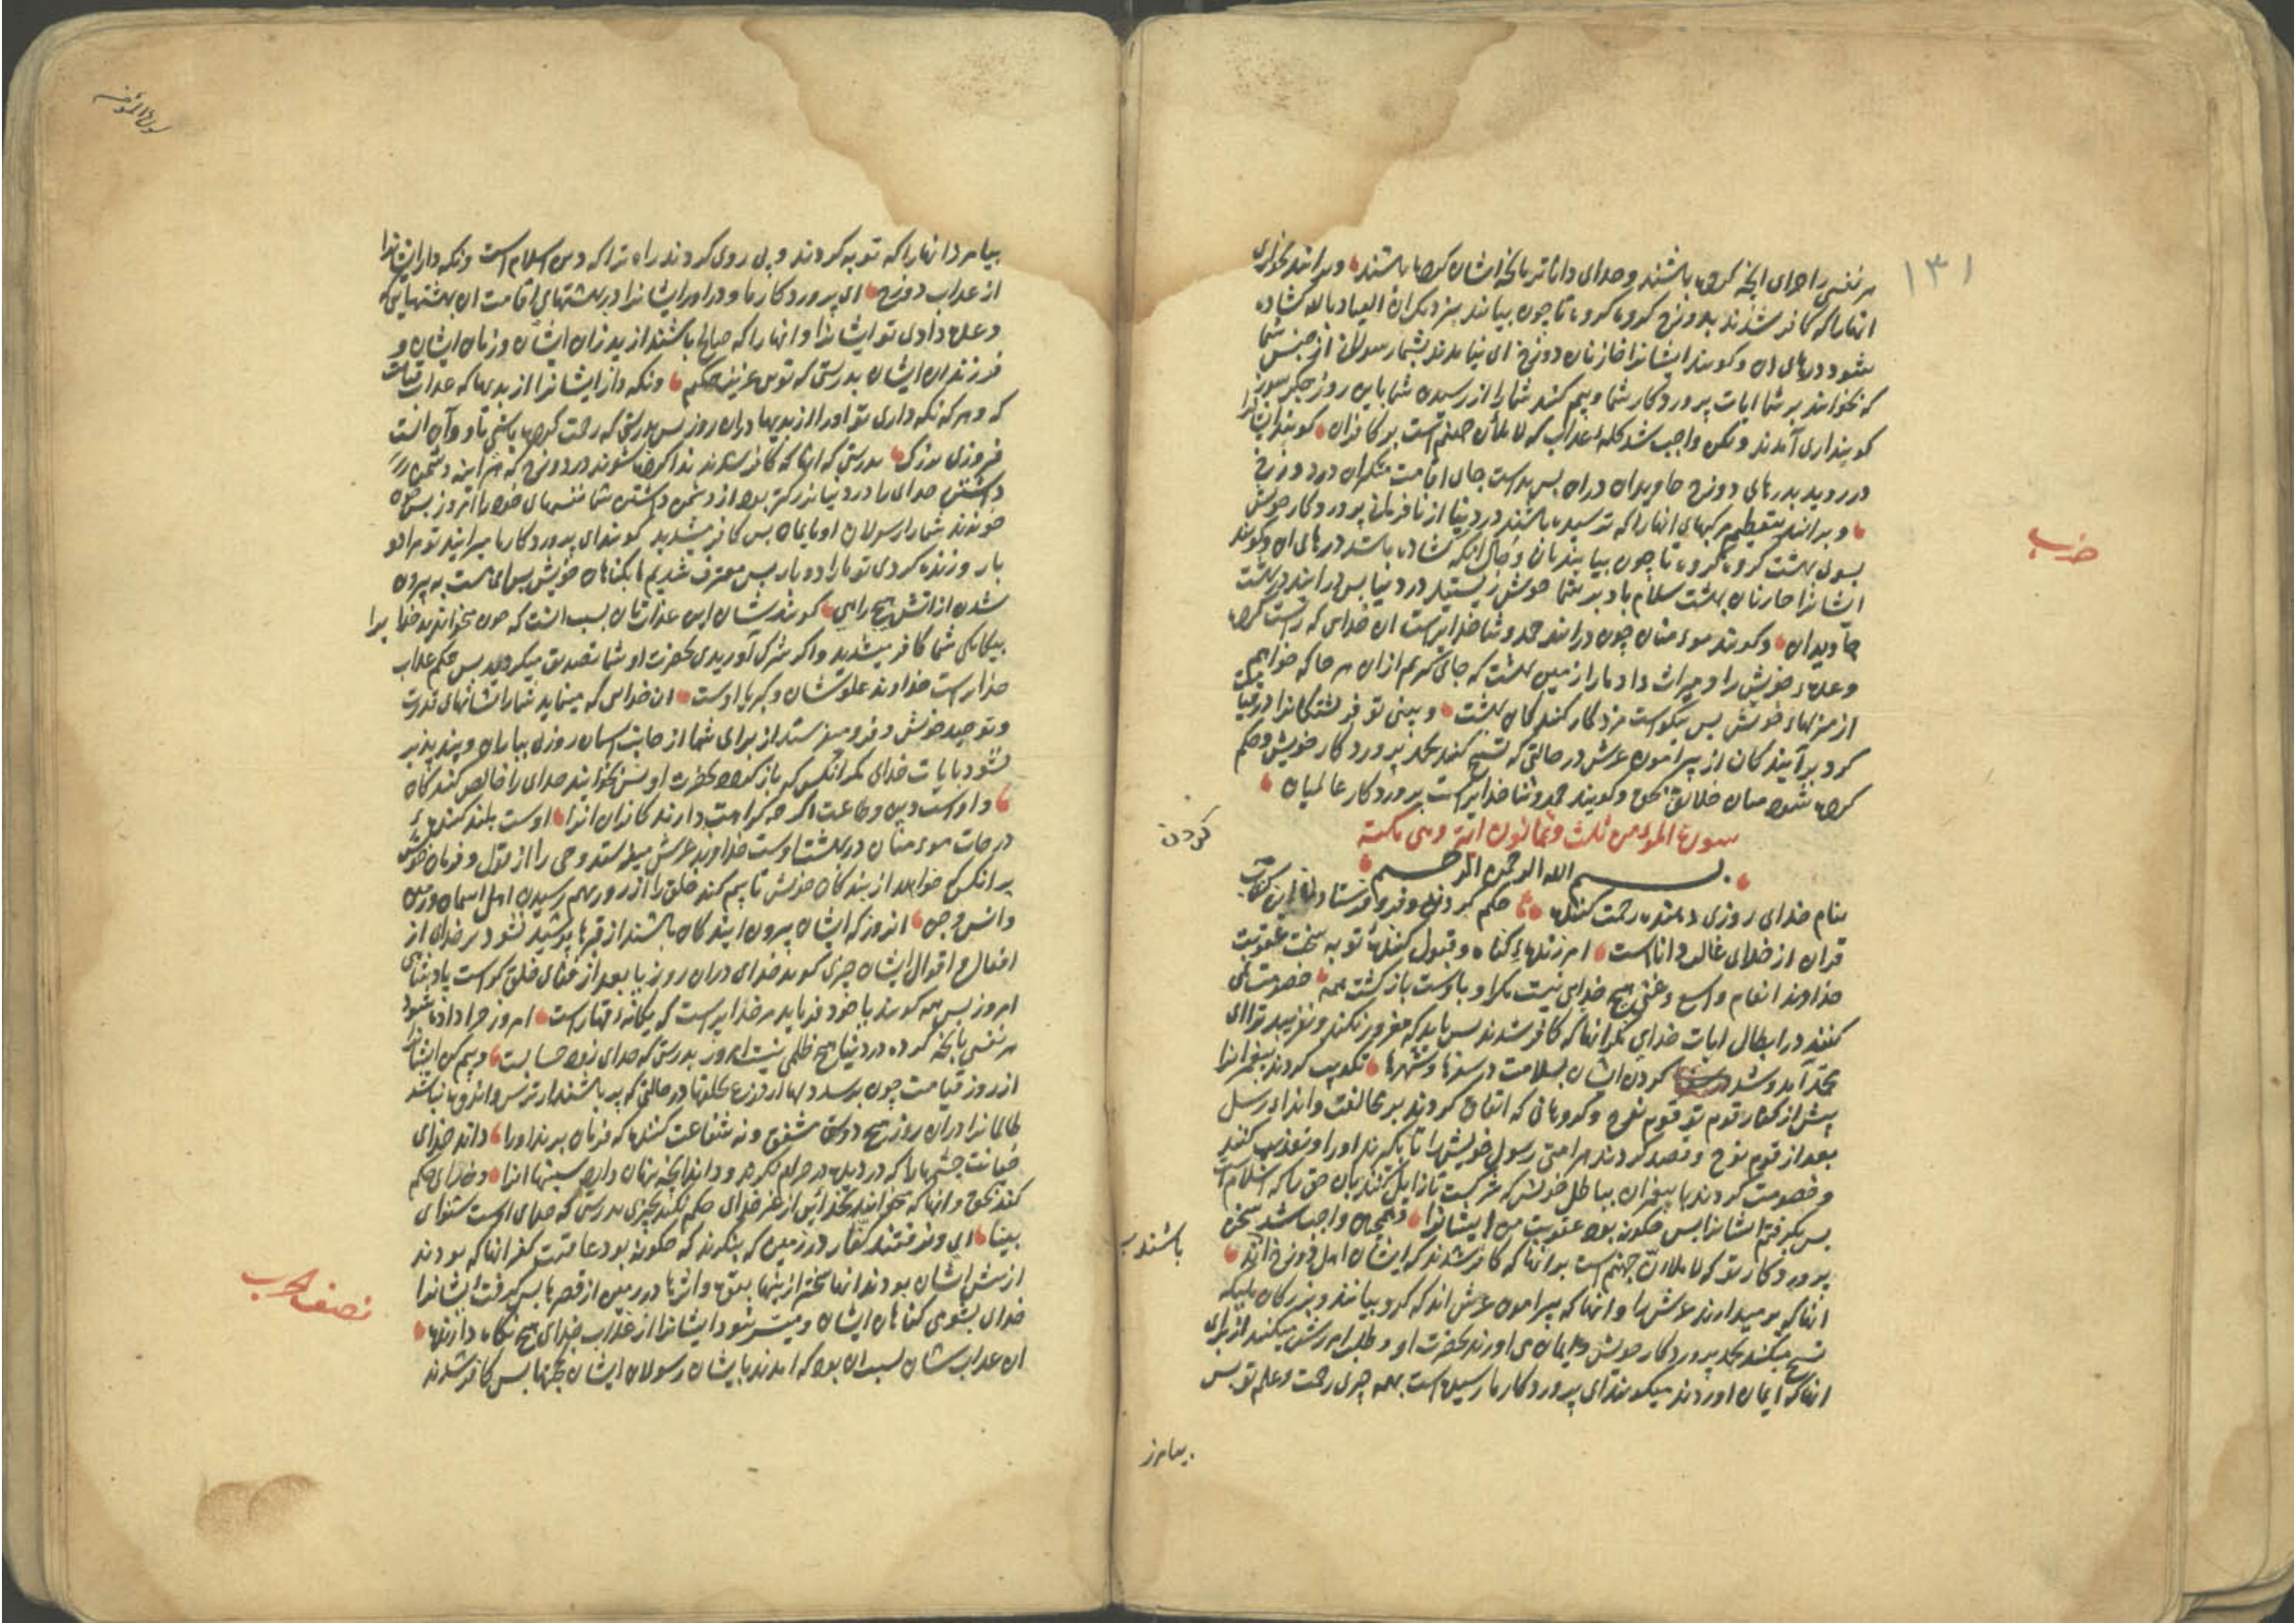 ۱۳۱
هر نفسی را جزای آنچه کرده باشند و خدای داناتر بآنچه ایشان کرده باشند و برانند بخواری
آنها را که کافر شدند بدوزخ گروه گروه تا چون بیایند بنزدیک آن العیاذ بالله گشاده
شود درهای آن و گویند ایشانرا خازنان دوزخ ای نیامدند بشما رسولان از جنس شما
که بخوانند بر شما ایات پروردگار شما و بیم کنند شما را از رسیدن شما باین روز جگر سوز
گویند اری آمدند ولکن واجب شد کلمه عذاب که لاملان جهنم است بر کافران گویند ایشانرا
در روید بدرهای دوزخ جاویدان دران پس بد است جای اقامت متکبران در دوزخ
و برانند بتعظیم مرکبهای انها را که ترسیده باشند در دنیا از نافرمانی پروردگار خویش
حزب
بسوی بهشت گروه گروه تا چون بیایند بان و حال انکه گشاده باشد درهای ان و گویند
ایشانرا خازنان بهشت سلام باد بر شما خوش زیستید در دنیا پس در ایند در بهشت
جاویدان و گویند مومنان چون درایند حمد و ثنا خدایراست ان خدای که راست کرد
وعده خویش را و میراث داد ما را از زمین بهشت که جای گیریم ازان هر جا که خواهیم
از منزلهاء خویش پس نیکوست مزد کار کنندگان بهشت و بینی تو فرشتگانرا در قیامت
گرد برآیندگان از پیرامون عرش در حالتی که تسبیح کنند بحمد پروردگار خویش و حکم
کرده شود میان خلائق بحق و گویند حمد و ثنا خدایراست پروردگار عالمیان
سورة المؤمن ثلث و ثمانون ایة و هی مکیة
کردن
بسم الله الرحمن الرحیم
بنام خدای روزی دهنده رحمت کننده حکم کردن و فرو فرستادن این کتاب
قران از خدای غالب داناست امرزندهٔ گناه و قبول کنندهٔ توبه سخت عقوبت
خداوند انعام واسع و غنی هیچ خدایی نیست مگر او باوست بازگشت همه خصومت نمی
کنند در ابطال ایات خدای مگر انها که کافر شدند پس باید که مغرور نکند و نفریبد ترا ای
محمد آمد و شد کردن ایشان بسلامت در سفرها و شهرها تکذیب کردند پیغمبرانرا
پیش از کفار قوم تو قوم نوح و گروهانی که اتفاق کردند بر مخالفت و ایذاء رسل
بعد از قوم نوح و قصد کردند هر امتی رسول خویش را تا بگیرند او را و تعذیب کنند
و خصومت کردند با پیغمبران بباطل خویش که شرکست تا زایل کنند بان حق را که اسلام است
پس بگرفتم ایشانرا پس چگونه بود عقوبت من ایشانرا و همچنان واجب شد سخن
باشند
پروردگار تو که لاملان جهنم است بر انها که کافر شدند که ایشان اهل دوزخ اند
انها که بر میدارند عرش را و انها که پیرامون عرش اند که کروبیانند و بزرگان ملیکه
تسبیح میکنند بحمد پروردگار خویش و ایمان می اورند بحضرت او و طلب امرزش میکنند از برای
انها که ایمان اوردند میگویند ای پروردگار ما رسیده است بهمه چیزی رحمت و علم تو پس
بیامرز
سورة المؤمن
بیامرز انها را که توبه کردند و پی روی کردند راه ترا که دین اسلام است و نگه دار ایشانرا
از عذاب دوزخ ای پروردگار ما و در اور ایشانرا در بهشتهای اقامت ان بهشتهایی که
وعده دادی تو ایشانرا و انها را که صالح باشند از پدران ایشان و زنان ایشان و
فرزندان ایشان بدرستی که تویی عزیز حکیم و نگه دار ایشانرا از بدیها که عذاب قیامت
که و هر که نگه داری تو او را از بدیها دران روز پس بدرستی که رحمت کرده باشی تا و آن است
فیروزی بزرگ بدرستی که انها که کافر شدند ندا کرده شوند در دوزخ که هر اینه دشمن
داشتن خدای را در دنیا بزرگتر بود از دشمن داشتن شما نفسهای خود را امروز پس چون
خوندند شما را رسولان او بایمان پس کافر میشدید گویند ای پروردگار ما میرانیدی تو ما را دو
بار و زنده کردی تو ما را دو بار پس معترف شدیم ما بگناهان خویش پس ای هست به بیرون
شدن از اتش هیچ راهی گویند شان این عذابتان بسبب انست که چون میخواندند خدا یرا
بیگانگی شما کافر میشدید و اگر شرک آوریدی بحضرت او شما تصدیق میکردید پس حکم عذاب
خدا راست خداوند علو شان و کبریا اوست ان خدایی که مینماید شما را نشانهای قدرت
و توحید خویش و فرو میفرستد از برای شما از جانب اسمان روزی بباران و پند پذیر
نشود بایات خدای مگر انکس که باز گردد بحضرت او پس بخوانید خدای را خالص کنندگان
مر او را دین و طاعت اگر چه کراهت دارند کافران انرا اوست بلند کنندهٔ
درجات مومنان در بهشت اوست خداوند عرش میفرستد وحی را از قول و فرمان خویش
بر انکس که خواهد از بندگان خویش تا بیم کند خلق را از روز بهم رسیدن اهل اسمان و زمین
و انس و جن انروز که ایشان بیرون ایندگان باشند از قبرها پوشیده نشود بر خدای از
افعال و اقوال ایشان چیزی گوید خدای دران روز یا بعد از فنای خلق که راست پادشاهی
امروز پس همه گویند یا خود فرماید مر خدایراست که یگانهٔ قهارست امروز جزا داده شود
هر نفسی بانچه کرده در دنیا هیچ ظلمی نیست امروز بدرستی که خدای زود حسابست و بیم کن ایشانرا
از روز قیامت چون برسد دلها از فزع بحلقها در حالتی که پر باشند از ترس و اندوه نباشد
ظالمانرا دران روز هیچ دوستی مشفق و نه شفاعت کننده که فرمان برند او را داند خدای
خیانت چشمها را که دزدیده در حرام نگرند و داند انچه پنهان دارد سینها انرا و خدای حکم
کند بحق و انها که میخوانند بخدایی از غیر خدای حکم نکنند بچیزی بدرستی که خدای اوست شنوای
بینا ای و نرفتند کفار در زمین که بنگرند که چگونه بود عاقبت کفر انها که بودند
از پیش ایشان بودند انها سختر از اینها بقوت و اثرها در زمین از قصرها پس بگرفت ایشانرا
نصف حزب
خدای بشومی گناهان ایشان و میسر نشود ایشانرا از عذاب خدای هیچ نگاه دارنده
ان عذاب شان بسبب ان بود که امدند بایشان رسولان ایشان بحجتها پس کافر شدند